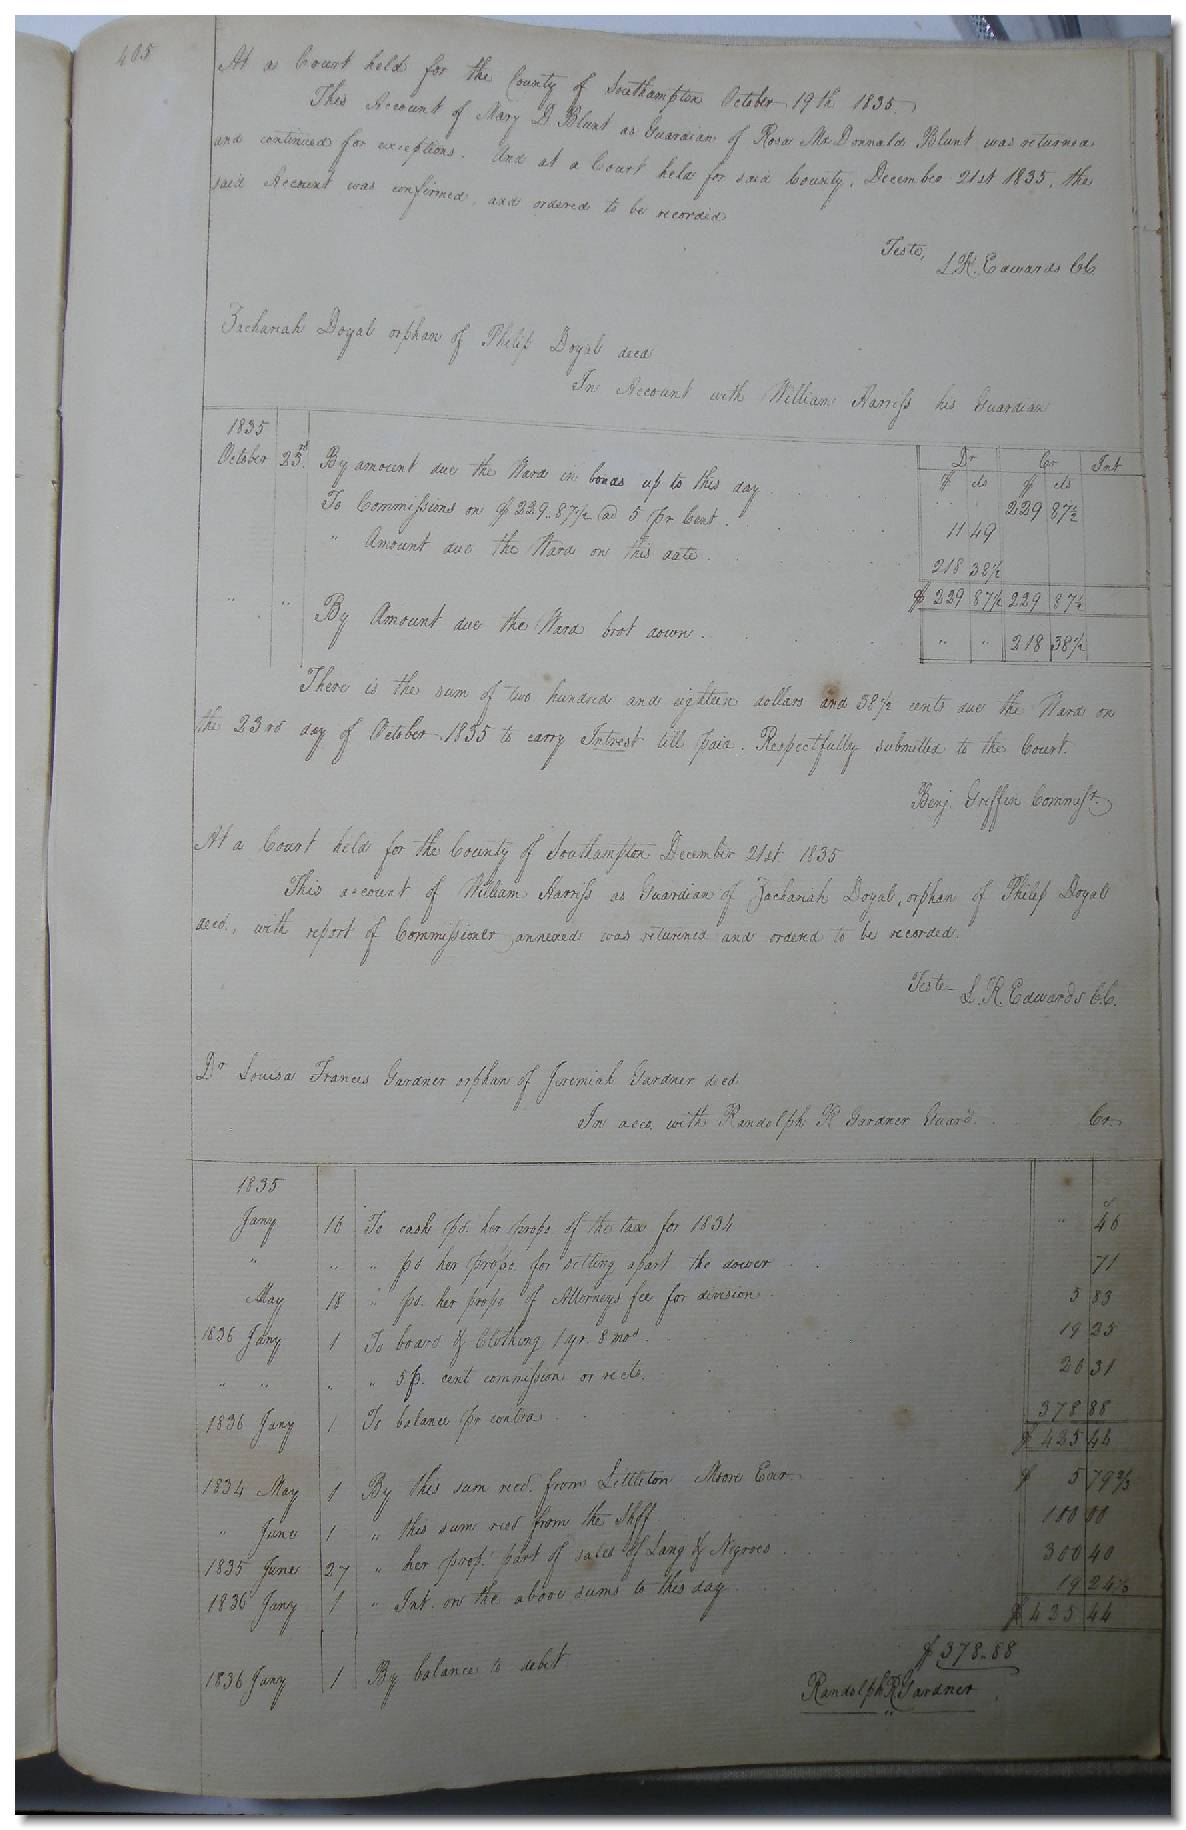 405
At a Court held for the County of Southampton October 19th 1835
This Account of Mary D Blunt as Guardian of Rosa McDonnald Blunt was returned
and continued for exceptions. And at a Court held for said County, December 21st 1835, the
said Account was confirmed, and ordered to be recorded
Teste, L. R. Edwards CC.
Zachariah Doyal orphan of Philip Doyal decd
In Account with William Harriss his Guardian
1835 Dr Cr Int
$ cts $ cts
October 23rd By amount due the Ward in bonds up to this day 229 87½
To Commissions on $229.87½ at 5 pr Cent 11 49
" Amount due the Ward on this date 218 38½
$ 229 87½ 229 87½
" " By Amount due the Ward brot down " " 218 38½
There is the sum of two hundred and eighteen dollars and 38½ cents due the Ward on
the 23rd day of October 1835 to carry Intrest till paid. Respectfully submitted to the Court.
Benj. Griffin Commissr.
At a Court held for the County of Southampton December 21st 1835
This account of William Harriss as Guardian of Zachariah Doyal, orphan of Philip Doyal
decd., with report of Commissioner annexed was returned and orderd to be recorded.
Teste L. R. Edwards C.C.
Dr Louisa Frances Gardner orphan of Jeremiah Gardner decd
In acco. with Randolph R Gardner Guard. Cr
1835
Jany 16 To cash pd. her propo of the tax for 1834 " 46
" " " pd her propo. for setting apart the dower 71
May 18 " pd. her propo of Attorneys fee for division 3 83
1836 Jany 1 To board & Clothing 1 yr. 8 mos. 19 25
" " " " 5 p. cent commission on rects. 20 31
1836 Jany 1 To balance pr contra 378 88
$ 425 44
1834 May 1 By this sum recd. from Littleton Moore Exor $ 5 79 2/3
" June 1 " this sum recd from the Shff 100 00
1835 June 27 " her prop. part of sales of Land & Negroes 300 40
1836 Jany 1 " Int. on the above sums to this day 19 24 1/3
$ 425 44
1836 Jany 1 By balance to debit $ 378.88
Randolph R Gardner